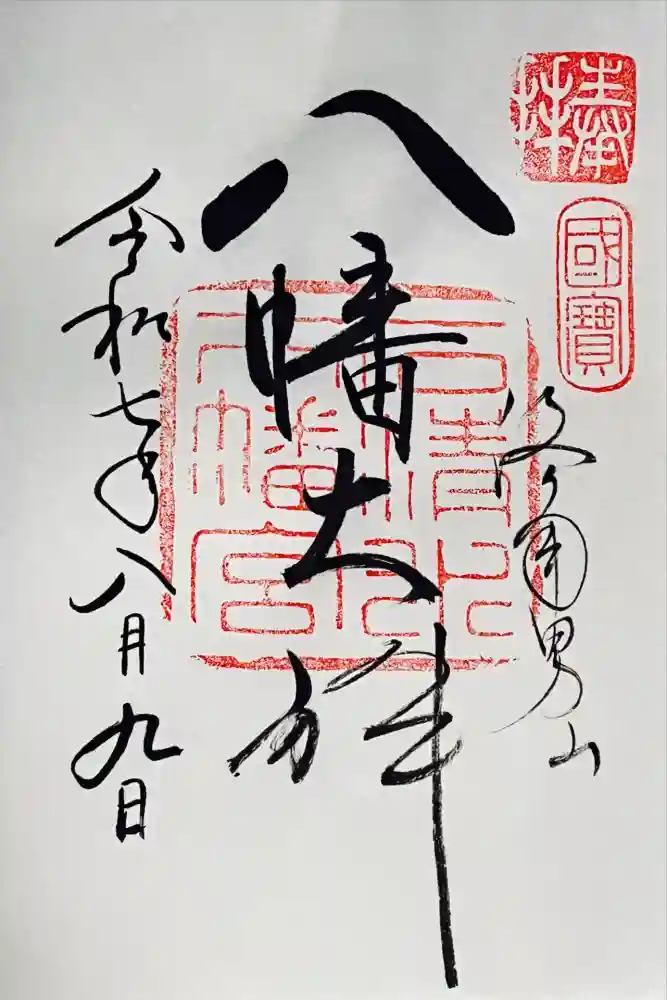 奉拝
國寶
洛南男山
八幡大神
石清水八幡宮
令和七年八月九日